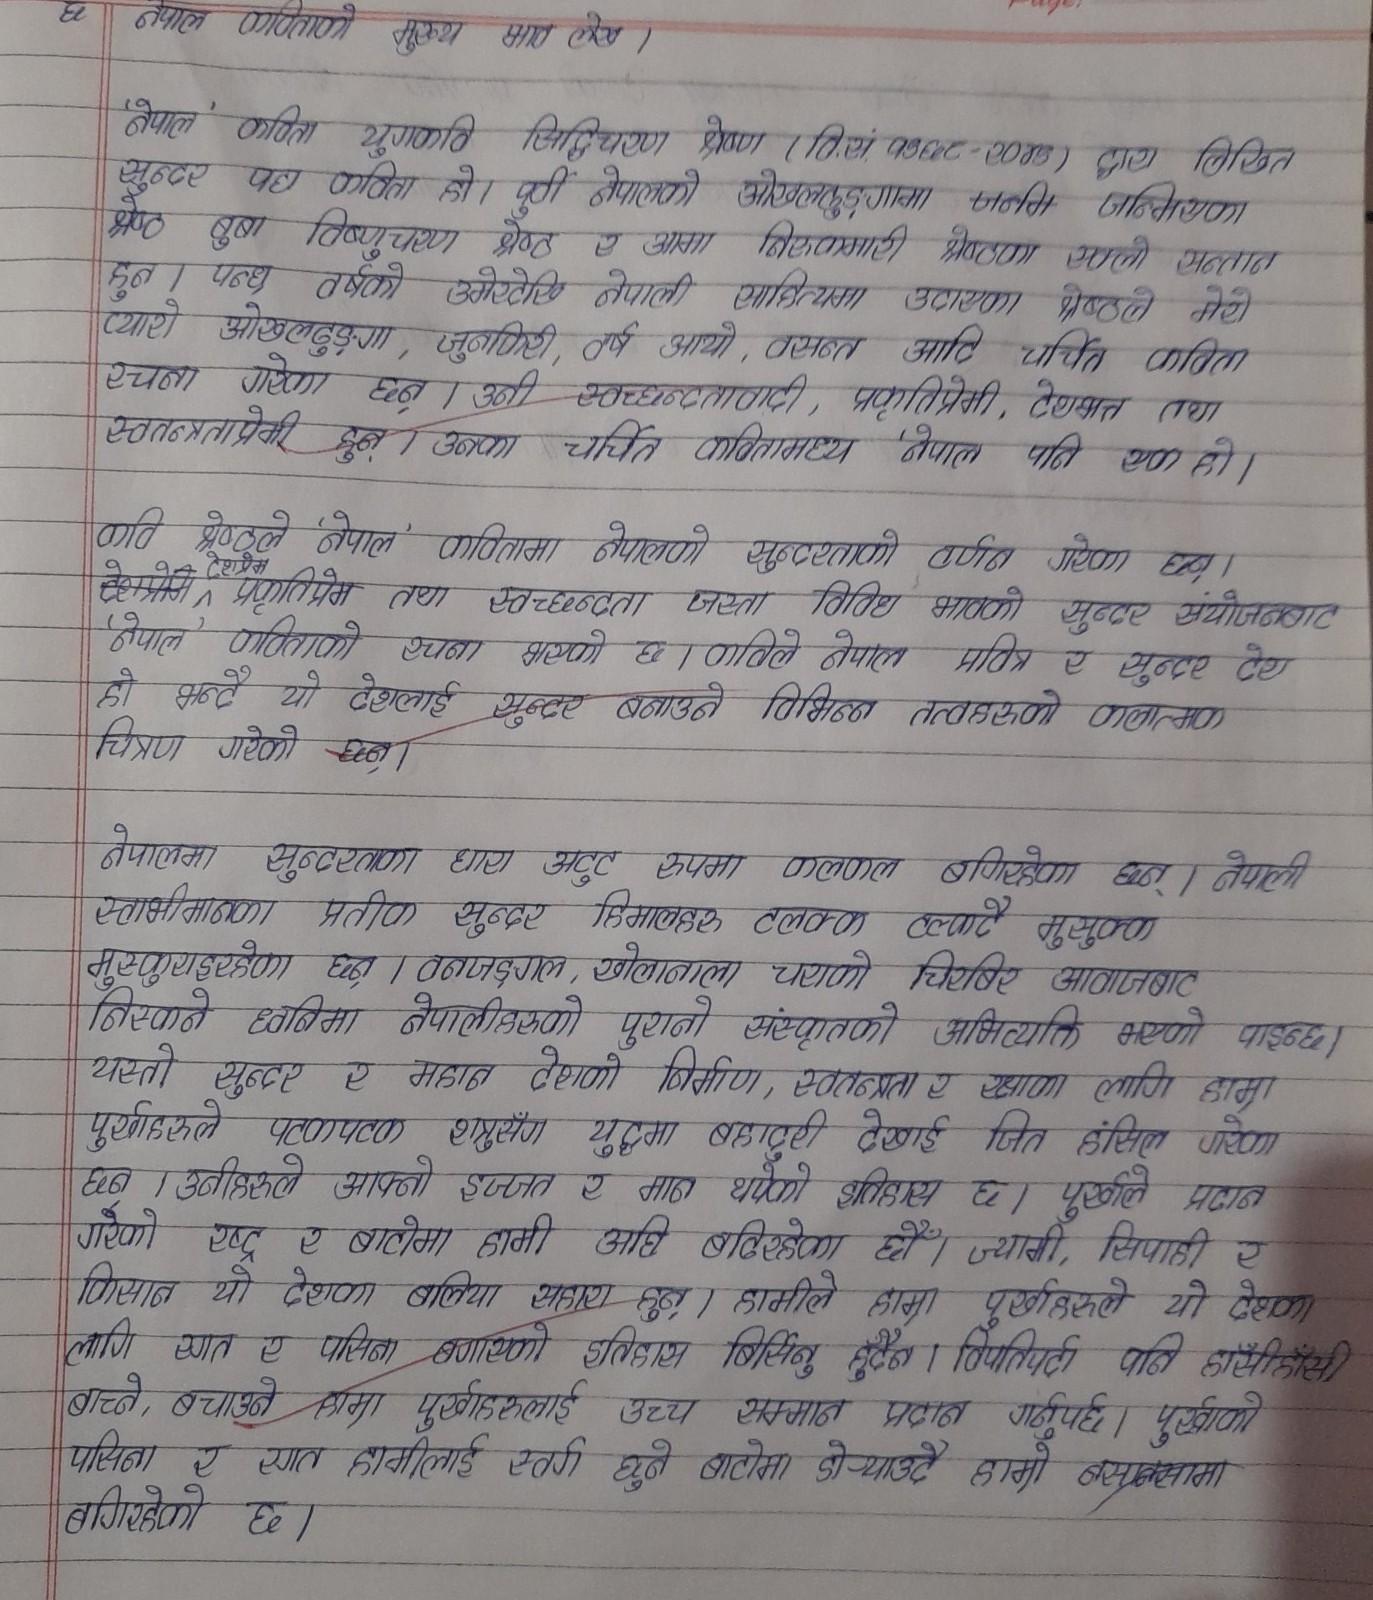 छ नेपाल कविताको मुख्य भाव लेख ।
'नेपाल' कविता युगकवि सिद्धिचरण श्रेष्ण (वि.सं. १९६९-२०४९) द्वारा लिखित
सुन्दर पद्य कविता हो । पुर्वी नेपालको ओखलढुङ्गामा जन्मि जन्मिएका
श्रेष्ठ बुबा विष्णुचरण श्रेष्ठ र आमा निरुकुमारी श्रेष्ठका एक्लो सन्तान
हुन् । पन्ध्र वर्षको उमेरदेखि नेपाली साहित्यमा उदाएका श्रेष्ठले मेरो
प्यारो ओखलढुङ्गा, जुनकिरी, वर्ष आयो, वसन्त आदि चर्चित कविता
रचना गरेका छन् । उनी स्वच्छन्दतावादी, प्रकृतिप्रेमी, देशभक्त तथा
स्वतन्त्रताप्रेमी हुन् । उनका चर्चित कवितामध्य 'नेपाल पनि एक हो ।
कवि श्रेष्ठले 'नेपाल' कवितामा नेपालको सुन्दरताको वर्णन गरेका छन् ।
देशप्रेमी देशप्रेम प्रकृतिप्रेम तथा स्वच्छन्दता जस्ता विविध भावको सुन्दर संयोजनबाट
'नेपाल' कविताको रचना भएको छ । कविले नेपाल पवित्र र सुन्दर देश
हो भन्दै यो देशलाई सुन्दर बनाउने विभिन्न तत्वहरुको कलात्मक
चित्रण गरेको छन् ।
नेपालमा सुन्दरताका धारा अटुट रुपमा कलकल बगिरहेका छन् । नेपाली
स्वाभीमानका प्रतीक सुन्दर हिमालहरु टलक्क टल्कदै मुसुक्क
मुस्कुराइरहेका छन् । वनजङ्गल, खोलानाला चराको चिरबिर आवाजबाट
निस्कने ध्वनिमा नेपालीहरुको पुरानो संस्कृतको अभिव्यक्ति भएको पाइन्छ ।
यस्तो सुन्दर र महान देशको निर्माण, स्वतन्त्रता र रक्षाका लागि हाम्रा
पुर्खाहरुले पटकपटक शत्रुसँग युद्धमा बहादुरी देखाई जित हंसिल गरेका
छन् । उनीहरुले आफ्नो इज्जत र मान थपेको इतिहास छ । पुर्खाले प्रदान
गरेको रष्ट्र र बाटोमा हामी अघि बढिरहेका छौँ । ज्यामी, सिपाही र
किसान यो देशका बलिया सहारा हुन् । हामीले हाम्रा पुर्खाहरुले यो देशका
लागि रगत र पसिना बगाएको इतिहास बिर्सिनु हुँदैन । विपतिपर्दा पनि हाँसीहाँसी
बाच्ने, बचाउने हाम्रा पुर्खाहरुलाई उच्च सम्मान प्रदान गर्नुपर्छ । पुर्खाको
पसिना र रगत हामीलाई स्वर्ग छुने बाटोमा डोर्‍याउदै हाम्रो नसानसामा
बगिरहेको छ ।